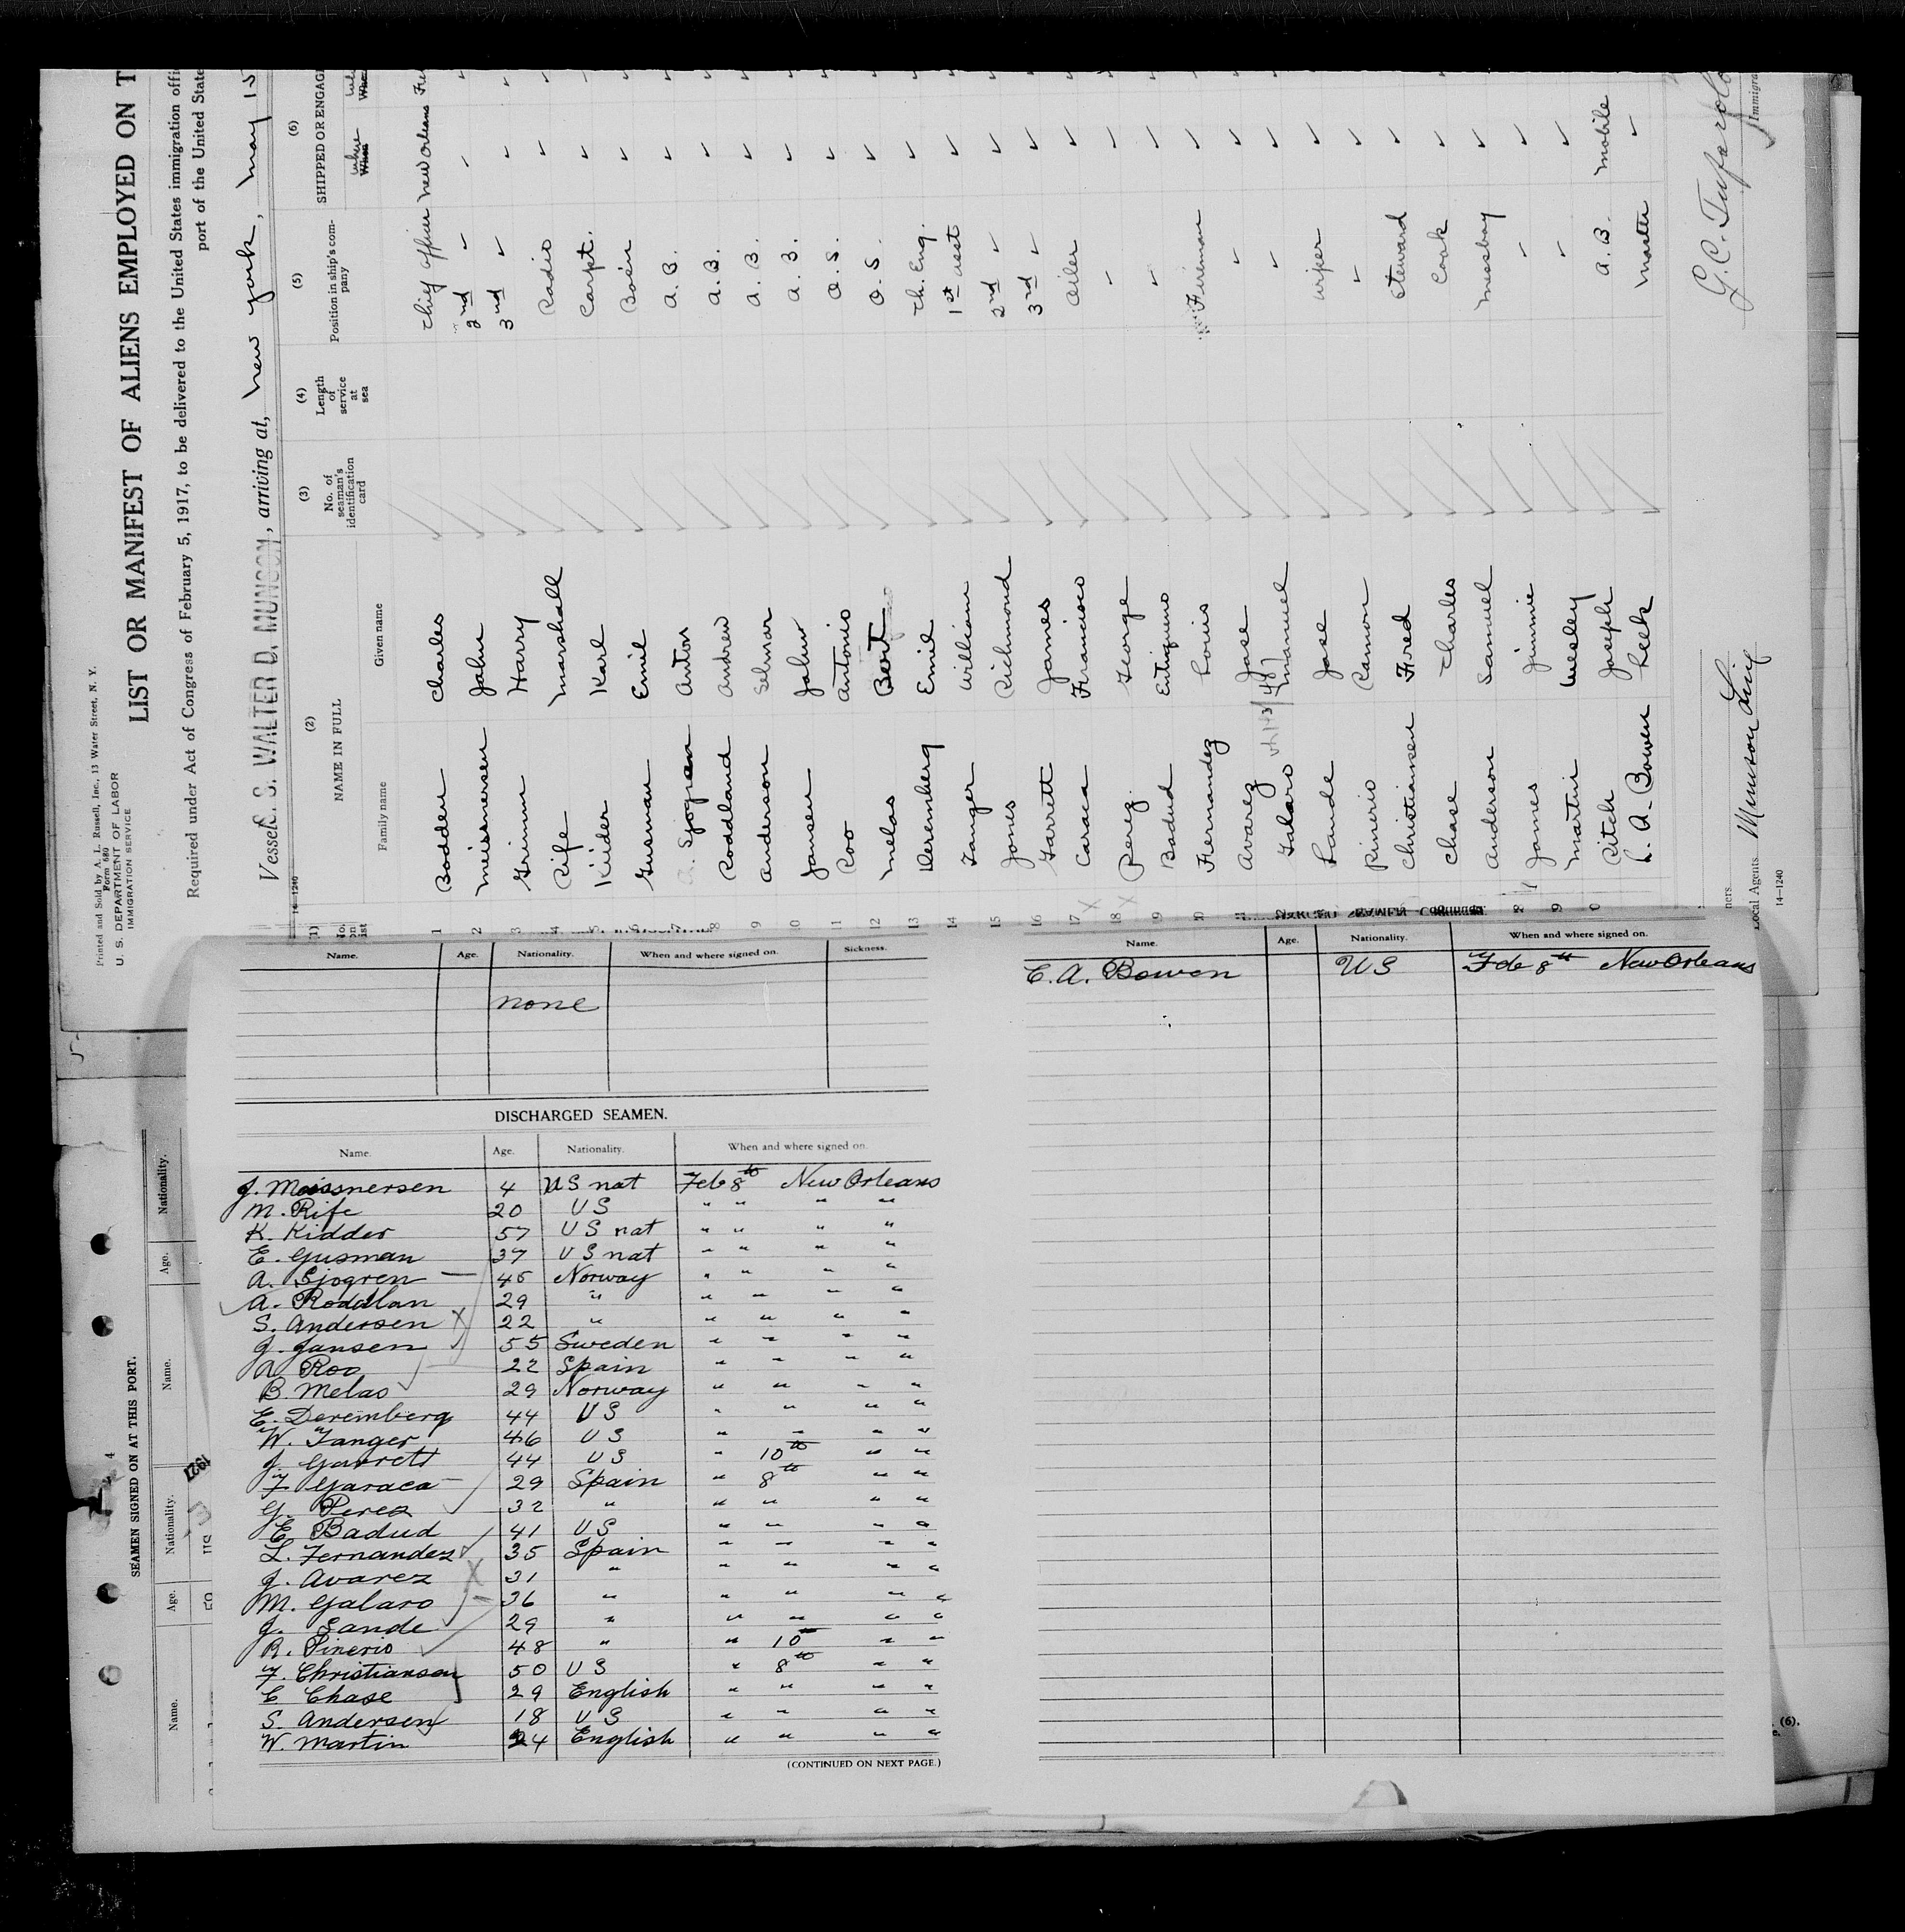 Printed and Sold by A. L. Russell, Inc., 13 Water Street, N. Y.
Form 680
U. S. DEPARTMENT OF LABOR
IMMIGRATION SERVICE
LIST OR MANIFEST OF ALIENS EMPLOYED ON T
Required under Act of Congress of February 5, 1917, to be delivered to the United States immigration offi
port of the United State
Vessel S. S. WALTER D. MUNSON, arriving at, New York, May 15
14-1240
(1) (2) (3) (4) (5) (6)
NAME IN FULL No. of seaman's identification card Length of service at sea Position in ship's company SHIPPED OR ENGAG
Family name Given name where When
1 Bodden Charles Chief Officer New Orleans
2 Meissnersen John 2nd
3 Grimm Harry 3rd
4 Rife Marshall Radio
5 Kidder Karl Carpt.
6 Gusman Emil Bosn
7 A. Sjogren Anton A. B.
8 Roddland Andrew A. B.
9 Anderson Selmar A. B.
10 Jansen John A. B.
11 Roo Antonio O. S.
12 Melas Bert O. S.
13 Deremberg Emil Ch. Eng.
14 Tanger William 1st Asst
15 Jones Richmond 2nd
16 Garrett James 3rd
17 Caraca Francisco Oiler
18 Perez George
19 Badud Entiqueno
Fernandez Louis Fireman
Avarez Jose
Galaro Manuel
Lande Jose Wiper
Pinerio Ramon
Christiansen Fred Steward
Chase Charles Cook
Anderson Samuel Messboy
James Jimmie
Martin Wesley
Ritch Joseph A. B. Mobile
L. A. Bowen Leek Master
G. C. Tufarolo
Immigra
Local Agents. Munson Line
14-1240
Name. Age. Nationality. When and where signed on. Sickness.
none
DISCHARGED SEAMEN.
Name. Age. Nationality. When and where signed on.
J. Meissnersen 4 US nat Feb 8th New Orleans
M. Rife 20 US " " " "
K. Kidder 57 US nat " " " "
E. Gusman 37 US nat " " " "
A. Sjogren 45 Norway " " " "
A. Roddlan 29 " " " " "
S. Andersen 22 " " " " "
J. Jansen 55 Sweden " " " "
A Roo 22 Spain " " " "
B. Melas 29 Norway " " " "
E. Deremberg 44 US " " " "
W. Tanger 46 US " " " "
J Garrett 44 US " 10th " "
F Garaca 29 Spain " 8th " "
G. Perez 32 " " " " "
E. Badud 41 US " " " "
L. Fernandez 35 Spain " " " "
J. Avarez 31 " " " " "
M. Galaro 36 " " " " "
J. Lande 29 " " " " "
R. Pinerio 48 " " 10 " "
F. Christiansen 50 US " 8th " "
C Chase 29 English " " " "
S. Andersen 18 US " " " "
W. Martin 24 English " " " "
(CONTINUED ON NEXT PAGE.)
Name. Age. Nationality. When and where signed on.
C. A. Bowen US Feb 8th New Orleans
SEAMEN SIGNED ON AT THIS PORT.
Name. Age. Nationality. Name. Age. Nationality.
1921
(6).